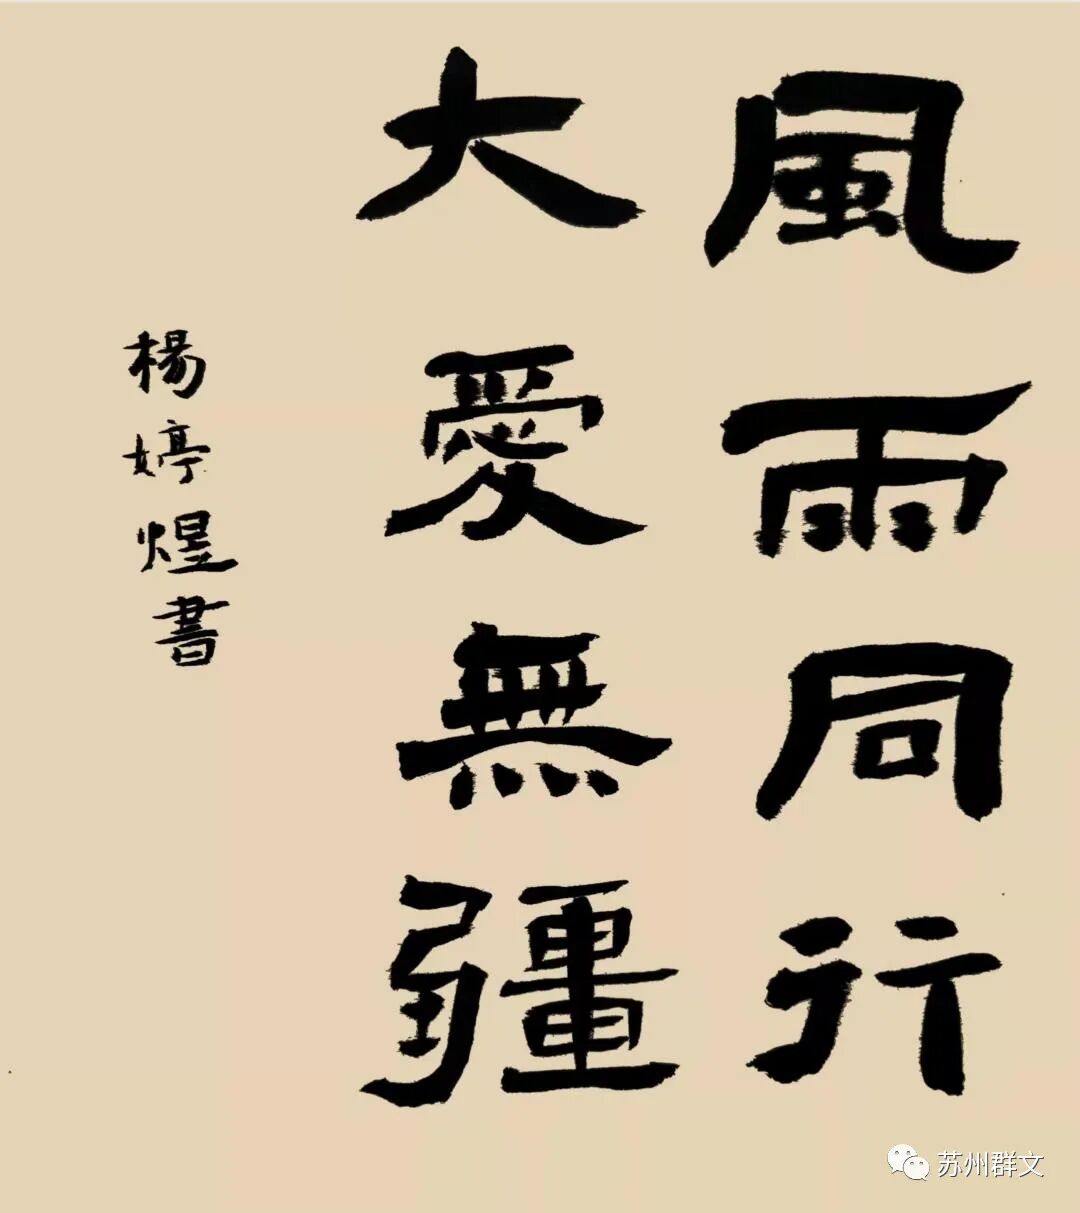 風雨同行
大愛無疆
楊婷煜書
苏州群文